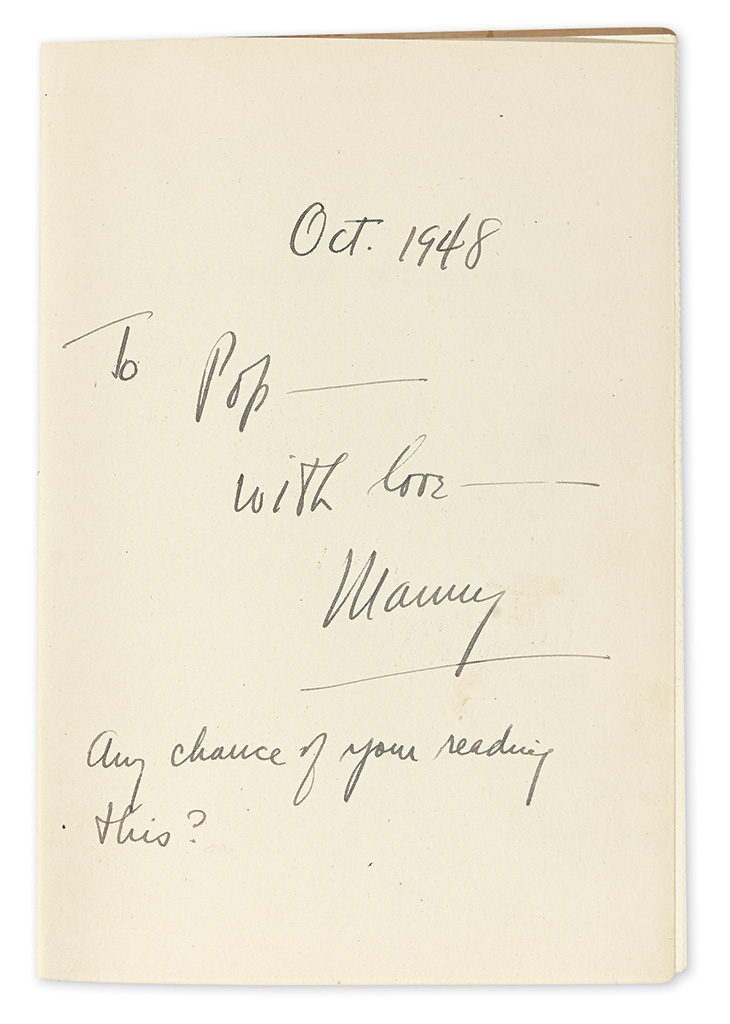 Oct. 1948
To Pop —
with love —
Manny
Any chance of your reading
this?